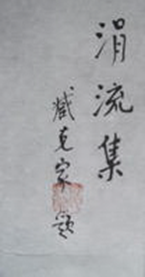 涓流集
臧克家题